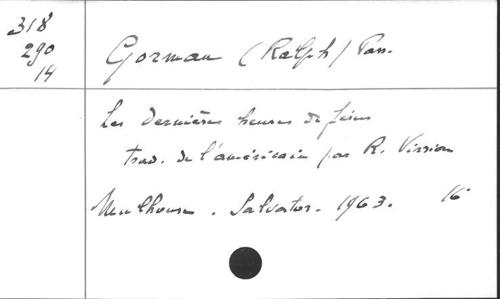 318
290
14
Gorman (Ralph) Pass.
Les dernières heures de Jésus
trad. de l'américain par R. Virrion
Mulhouse. Salvator. 1963. 16°